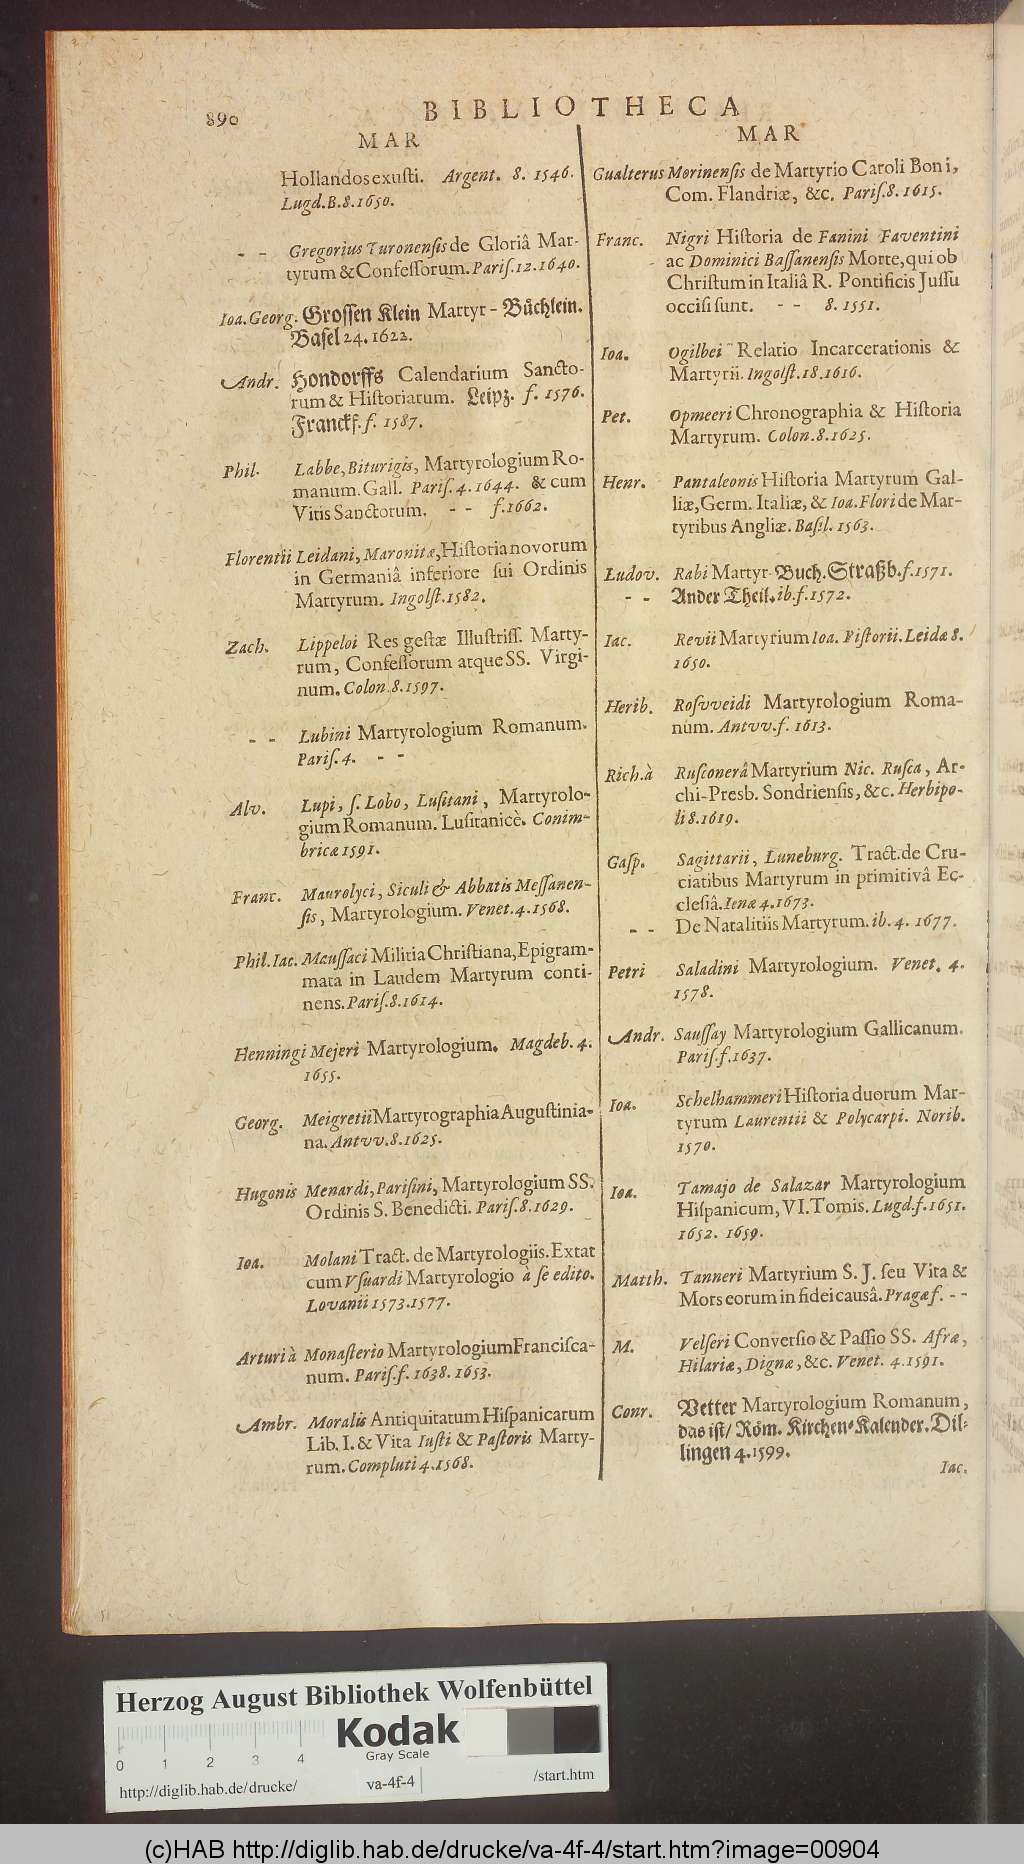 890
BIBLIOTHECA
MAR
Hollandos exuſti. Argent. 8. 1546.
Lugd. B. 8. 1650.
- - Gregorius Turonenſis de Gloriâ Mar-
tyrum & Confeſſorum. Pariſ. 12. 1640.
Ioa. Georg. Groſſen Klein Martyr-Büchlein.
Baſel 24. 1622.
Andr. Hondorffs Calendarium Sancto-
rum & Hiſtoriarum. Leipz. f. 1576.
Franckf. f. 1587.
Phil. Labbe, Biturigis, Martyrologium Ro-
manum. Gall. Pariſ. 4. 1644. & cum
Vitis Sanctorum. - - f. 1662.
Florentii Leidani, Maronitæ, Hiſtoria novorum
in Germaniâ inferiore ſui Ordinis
Martyrum. Ingolſt. 1582.
Zach. Lippeloi Res geſtæ Illuſtriſſ. Marty-
rum, Confeſſorum atque SS. Virgi-
num. Colon. 8. 1597.
- - Lubini Martyrologium Romanum.
Pariſ. 4. - -
Alv. Lupi, ſ. Lobo, Luſitani, Martyrolo-
gium Romanum. Luſitanicè. Conim-
bricæ 1591.
Franc. Maurolyci, Siculi & Abbatis Meſſanen-
ſis, Martyrologium. Venet. 4. 1568.
Phil. Iac. Mauſſaci Militia Chriſtiana, Epigram-
mata in Laudem Martyrum conti-
nens. Pariſ. 8. 1614.
Henningi Mejeri Martyrologium. Magdeb. 4.
1655.
Georg. Meigretii Martyrographia Auguſtinia-
na. Antvv. 8. 1625.
Hugonis Menardi, Pariſini, Martyrologium SS.
Ordinis S. Benedicti. Pariſ. 8. 1629.
Ioa. Molani Tract. de Martyrologiis. Extat
cum Vſuardi Martyrologio à ſe edito.
Lovanii 1573. 1577.
Arturi à Monaſterio Martyrologium Franciſca-
num. Pariſ. f. 1638. 1653.
Ambr. Moralis Antiquitatum Hiſpanicarum
Lib. I. & Vita Iuſti & Paſtoris Marty-
rum. Compluti 4. 1568.
MAR
Gualterus Morinenſis de Martyrio Caroli Boni,
Com. Flandriæ, &c. Pariſ. 8. 1615.
Franc. Nigri Hiſtoria de Fanini Faventini
ac Dominici Baſſanenſis Morte, qui ob
Chriſtum in Italiâ R. Pontificis Juſſu
occiſi ſunt. - - 8. 1551.
Ioa. Ogilbei Relatio Incarcerationis &
Martyrii. Ingolſt. 18. 1616.
Pet. Opmeeri Chronographia & Hiſtoria
Martyrum. Colon. 8. 1625.
Henr. Pantaleonis Hiſtoria Martyrum Gal-
liæ, Germ. Italiæ, & Ioa. Flori de Mar-
tyribus Angliæ. Baſil. 1563.
Ludov. Rabi Martyr-Buch. Straßb. f. 1571.
- - Ander Theil. ib. f. 1572.
Iac. Revii Martyrium Ioa. Piſtorii. Leidæ 8.
1650.
Herib. Roſvveidi Martyrologium Roma-
num. Antvv. f. 1613.
Rich. à Ruſconerâ Martyrium Nic. Ruſca, Ar-
chi-Presb. Sondrienſis, &c. Herbipo-
li 8. 1619.
Gaſp. Sagittarii, Luneburg. Tract. de Cru-
ciatibus Martyrum in primitivâ Ec-
cleſiâ. Ienæ 4. 1673.
- - De Natalitiis Martyrum. ib. 4. 1677.
Petri Saladini Martyrologium. Venet. 4.
1578.
Andr. Sauſſay Martyrologium Gallicanum.
Pariſ. f. 1637.
Ioa. Schelhammeri Hiſtoria duorum Mar-
tyrum Laurentii & Polycarpi. Norib.
1570.
Ioa. Tamajo de Salazar Martyrologium
Hiſpanicum, VI. Tomis. Lugd. f. 1651.
1652. 1659.
Matth. Tanneri Martyrium S. J. ſeu Vita &
Mors eorum in fidei causâ. Pragæ f. - -
M. Velſeri Converſio & Paſſio SS. Afræ,
Hilariæ, Dignæ, &c. Venet. 4. 1591.
Conr. Vetter Martyrologium Romanum,
das iſt/ Röm. Kirchen-Kalender. Dil-
lingen 4. 1599.
Iac.
Herzog August Bibliothek Wolfenbüttel
Kodak
Gray Scale
0 1 2 3 4
http://diglib.hab.de/drucke/ va-4f-4 /start.htm
(c)HAB http://diglib.hab.de/drucke/va-4f-4/start.htm?image=00904